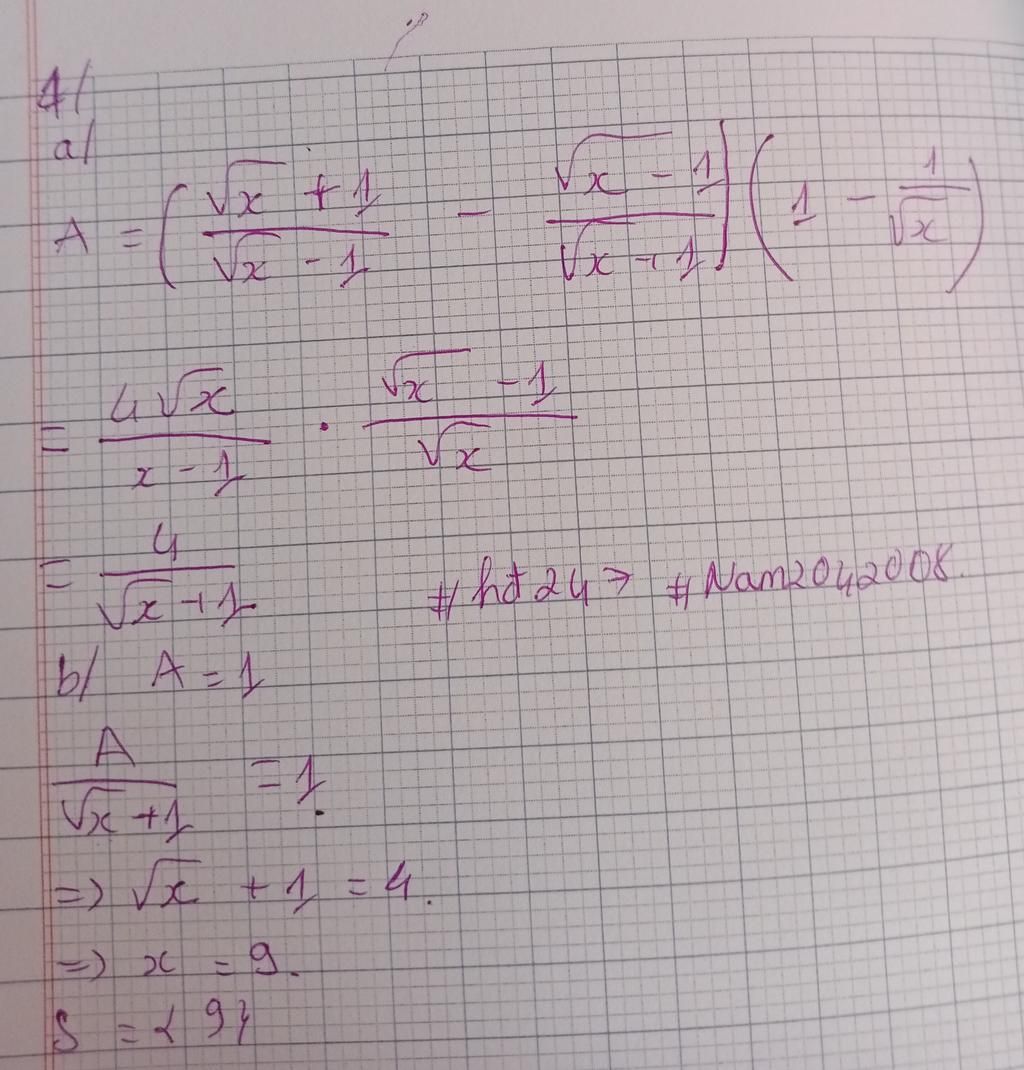 4/
a/
A = (\frac{\sqrt{x} + 1}{\sqrt{x} - 1} - \frac{\sqrt{x} - 1}{\sqrt{x} + 1}) (1 - \frac{1}{\sqrt{x}})
= \frac{4\sqrt{x}}{x - 1} . \frac{\sqrt{x} - 1}{\sqrt{x}}
= \frac{4}{\sqrt{x} + 1} #hđ24 → #Nam2042008.
b/ A = 1
\frac{A}{\sqrt{x} + 1} = 1.
=> \sqrt{x} + 1 = 4.
=> x = 9.
S = {9}